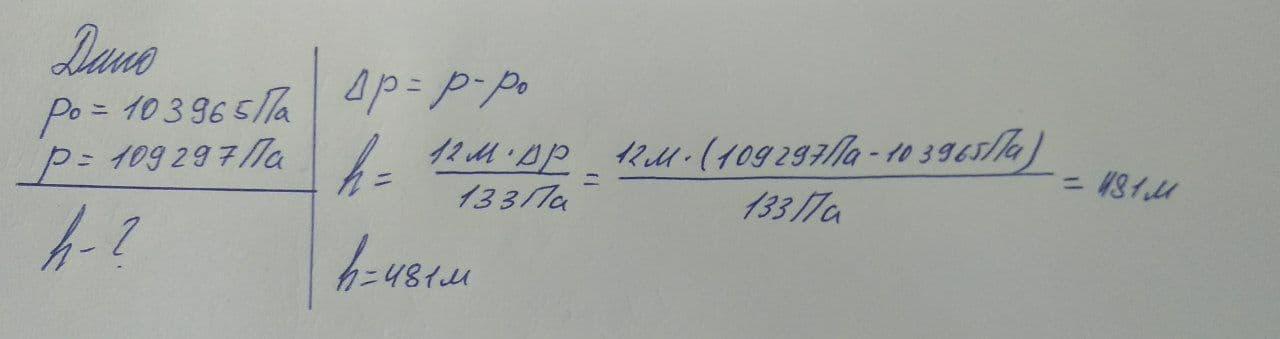 Дано
p₀ = 103965Па
p = 109297Па
h - ?
Δp = p - p₀
h = 12м · Δp / 133Па = 12м · (109297Па - 103965Па) / 133Па = 481м
h = 481м